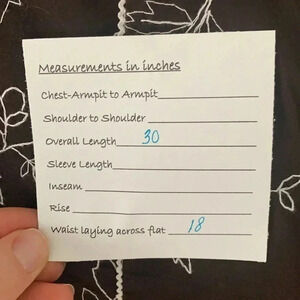 Measurements in inches
Chest-Armpit to Armpit
Shoulder to Shoulder
Overall Length 30
Sleeve Length
Inseam
Rise
Waist laying across flat 18